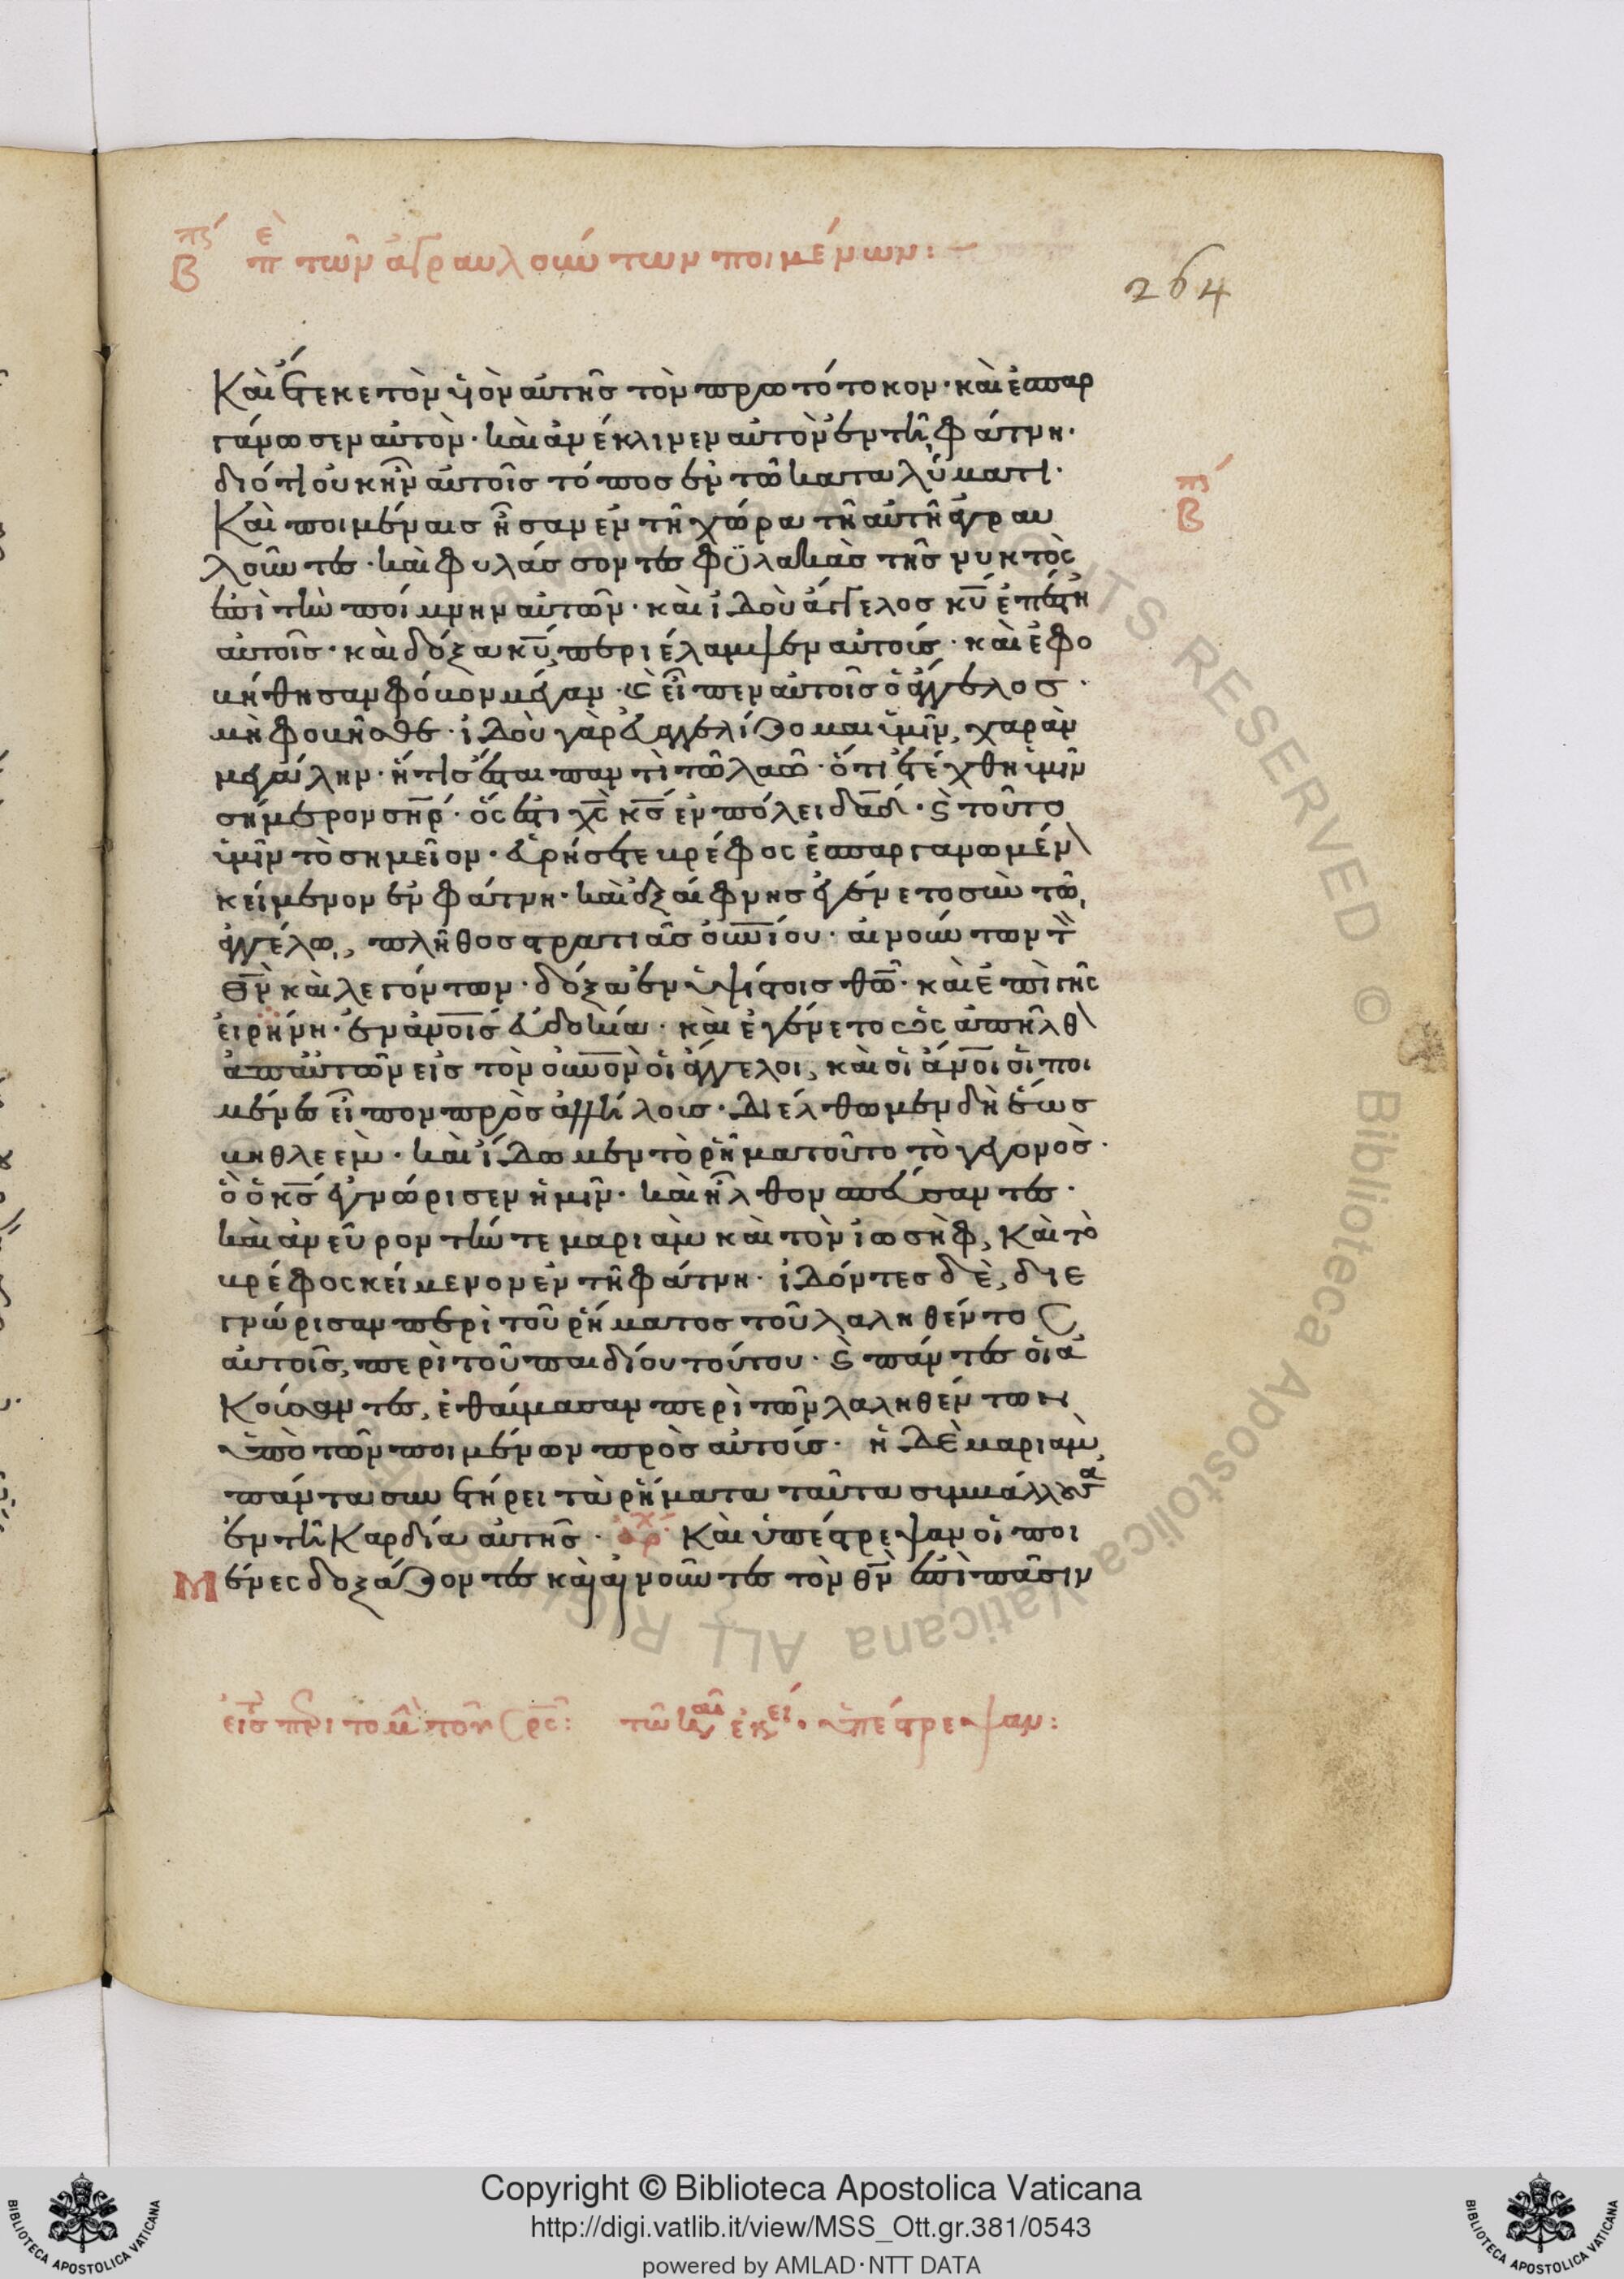 Β π̅ὲ τῶν ἀγραυλούντων ποιμένων:
264
Καὶ ἔτεκε τὸν ὑὸν αὐτῆς τὸν πρωτότοκον· καὶ ἐσπαρ
γάνωσεν αὐτὸν· καὶ ἀνέκλινεν αὐτὸν ἐν τῆ φάτνη·
διότι οὐκ ἦν αὐτοῖς τόπος ἐν τῶ καταλύματι·
Καὶ ποιμέναις ἦσαν ἐν τῆ χώρα τῆ αὐτῆ ἀγραυ
λοῦντες· καὶ φυλάσσοντες φϋλακὰς τῆς νυκτὸς
ἐπὶ τὴν ποίμνην αὐτῶν· καὶ ἰδοὺ ἄγγελος κ̅υ̅ ἐπέστη
αὐτοῖς· καὶ δόξα κ̅υ̅ περιέλαμψεν αὐτούς· καὶ ἐφο
βήθησαν φόβον μέγαν· καὶ εἶπεν αὐτοῖς ὁ ἄγγελος·
μὴ φοβῆσθε· ἰδοὺ γὰρ εὐαγγελίζομαι ὑμῖν, χαρὰν
μεγάλην· ἥτις ἔσται παντὶ τῶ λαῶ· ὅτι ἐτέχθη ὑμῖν
σήμερον σ̅η̅ρ̅· ὅς ἐστι χ̅ς̅ κ̅ς̅ ἐν πόλει δ̅α̅δ̅· καὶ τοῦτο
ὑμῖν τὸ σημεῖον· εὑρήσετε βρέφος ἐσπαργανωμέν
κείμενον ἐν φάτνη· καὶ ἐξαίφνης ἐγένετο σὺν τῶ
ἀγγέλω, πλῆθος στρατιᾶς οὐ̅ν̅ίου· αἰνούντων τ
θ̅ν̅ καὶ λεγόντων· δόξα ἐν ὑψίστοις θ̅ω̅· καὶ ἐπὶ γῆς
εἰρήνη· ἐν ἀ̅ν̅οις εὐδοκία· καὶ ἐγένετο ὡς ἀπῆλθ
ἀπ αὐτῶν εἰς τὸν οὐ̅ν̅ον οἱ ἄγγελοι, καὶ οἱ ἄ̅ν̅οι οἱ ποι
μένες εἶπον πρὸς ἀλλήλοις· διέλθωμεν δὴ ἕως
βηθλεὲμ· καὶ ἴδωμεν τὸ ῥῆμα τοῦτο τὸ γεγονὸς·
ὃ ὁ κ̅ς̅ ἐγνώρισεν ἡμῖν· καὶ ἦλθον σπεύσαντες·
καὶ ἀνεῦρον τὴν τε μαριὰμ καὶ τὸν ἰωσὴφ, Καὶ τὸ
βρέφος κείμενον ἐν τῆ φάτνη· ἰδόντες δὲ, διε
γνώρισαν περὶ τοῦ ῥήματος τοῦ λαληθέντος
αὐτοῖς, περὶ τοῦ παιδίου τούτου· καὶ πάντες οἱ ἀ
Κούσαντες, ἐθαύμασαν περὶ τῶν λαληθέντων
ὑπὸ τῶν ποιμένων πρὸς αὐτούς· ἡ δὲ μαριὰμ
πάντα συνετήρει τὰ ῥήματα ταῦτα συμβάλλουσα
ἐν τῆ Καρδία αὐτῆς· Καὶ ὑπέστρεψαν οἱ ποι
Μ ένες δοξάζοντες καὶ αἰνοῦντες τὸν θ̅ν̅ ἐπὶ πᾶσιν
Β
ὑπέστρεψαν:
Copyright © Biblioteca Apostolica Vaticana
http://digi.vatlib.it/view/MSS_Ott.gr.381/0543
powered by AMLAD·NTT DATA
BIBLIOTECA APOSTOLICA VATICANA
BIBLIOTECA APOSTOLICA VATICANA